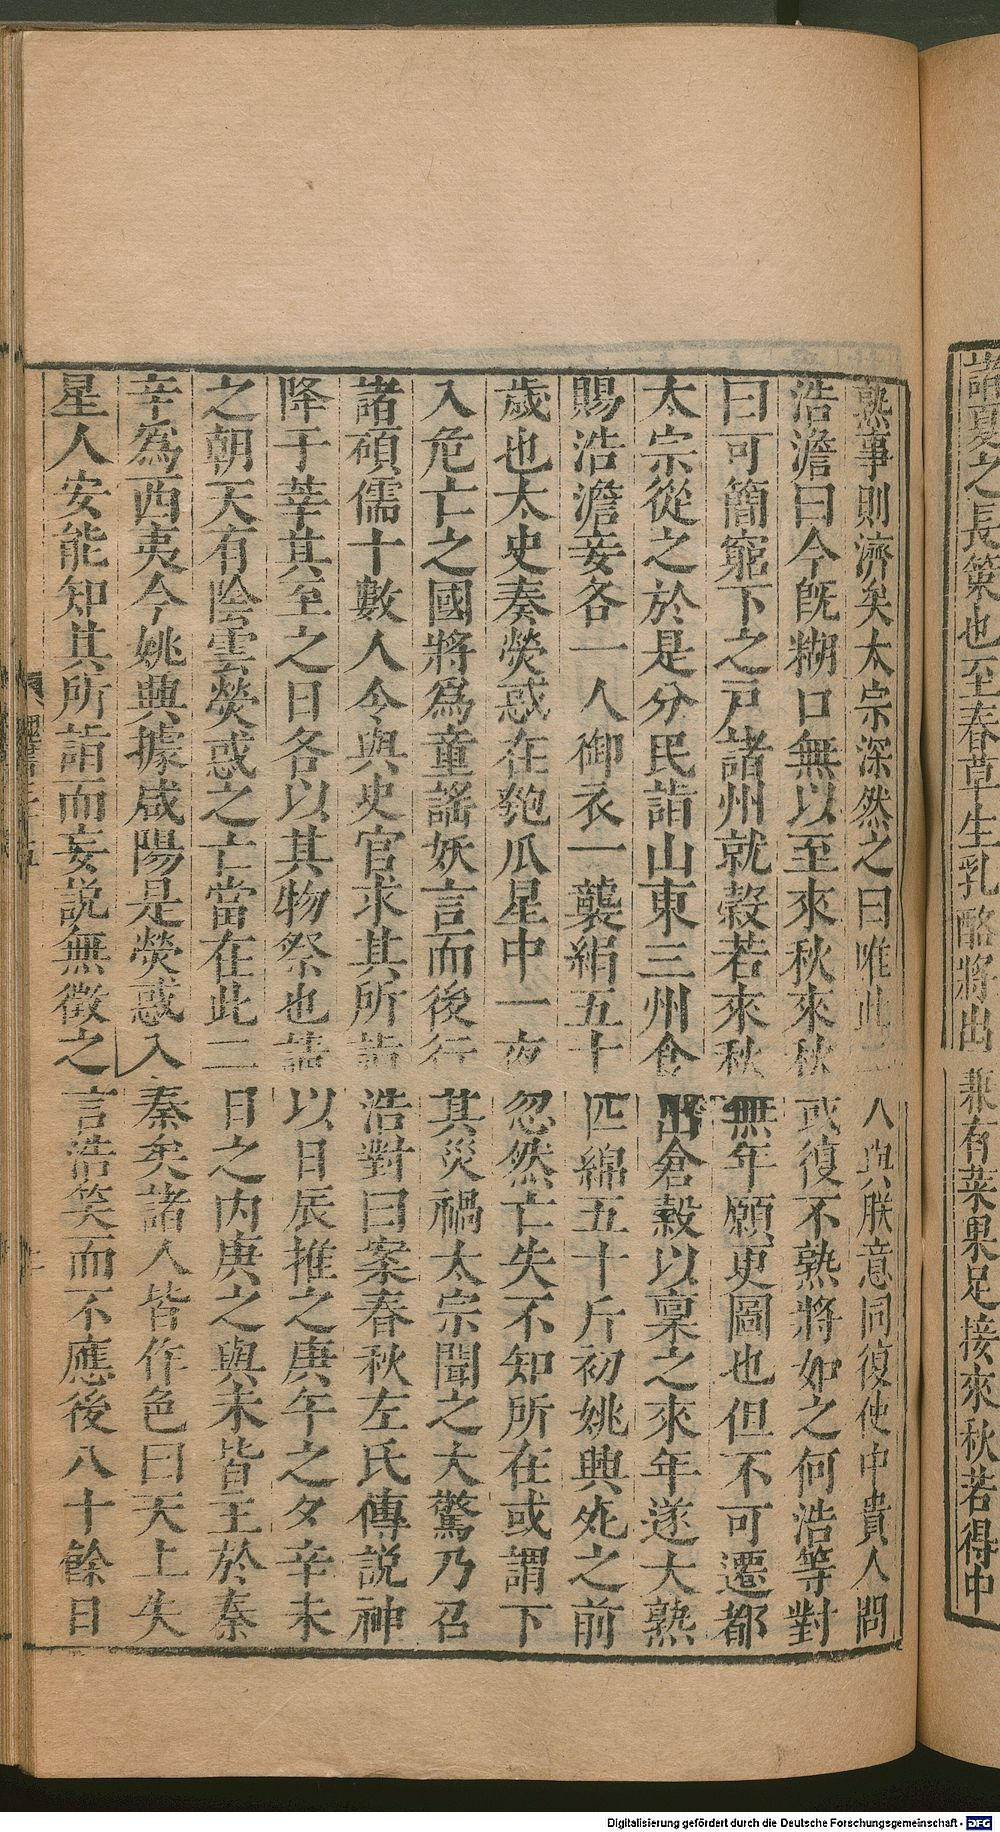 諸夏之長策也至春草生乳酪將出兼有菜果足接來秋若得中
熟事則濟矣太宗深然之曰唯此二人與朕意同復使中貴人問
浩澹曰今旣糊口無以至來秋來秋或復不熟將如之何浩等對
曰可簡窮下之戸諸州就穀若來秋無年願更圖也但不可遷都
太宗從之於是分民詣山東三州食出倉穀以稟之來年遂大熟
賜浩澹妾各一人御衣一襲絹五十匹綿五十斤初姚興死之前
歲也太史奏熒惑在匏瓜星中一夜忽然亡失不知所在或謂下
入危亡之國將爲童謠妖言而後行其災禍太宗聞之大驚乃召
諸碩儒十數人令與史官求其所詣浩對曰案春秋左氏傳説神
降于莘其至之日各以其物祭也請以日辰推之庚午之夕辛未
之朝天有陰雲熒惑之亡當在此二日之内庚之與未皆王於秦
辛爲西夷今姚興據咸陽是熒惑入秦矣諸人皆作色曰天上失
星人安能知其所詣而妄説無徵之言浩笑而不應後八十餘日
Digitalisierung gefördert durch die Deutsche Forschungsgemeinschaft - DFG